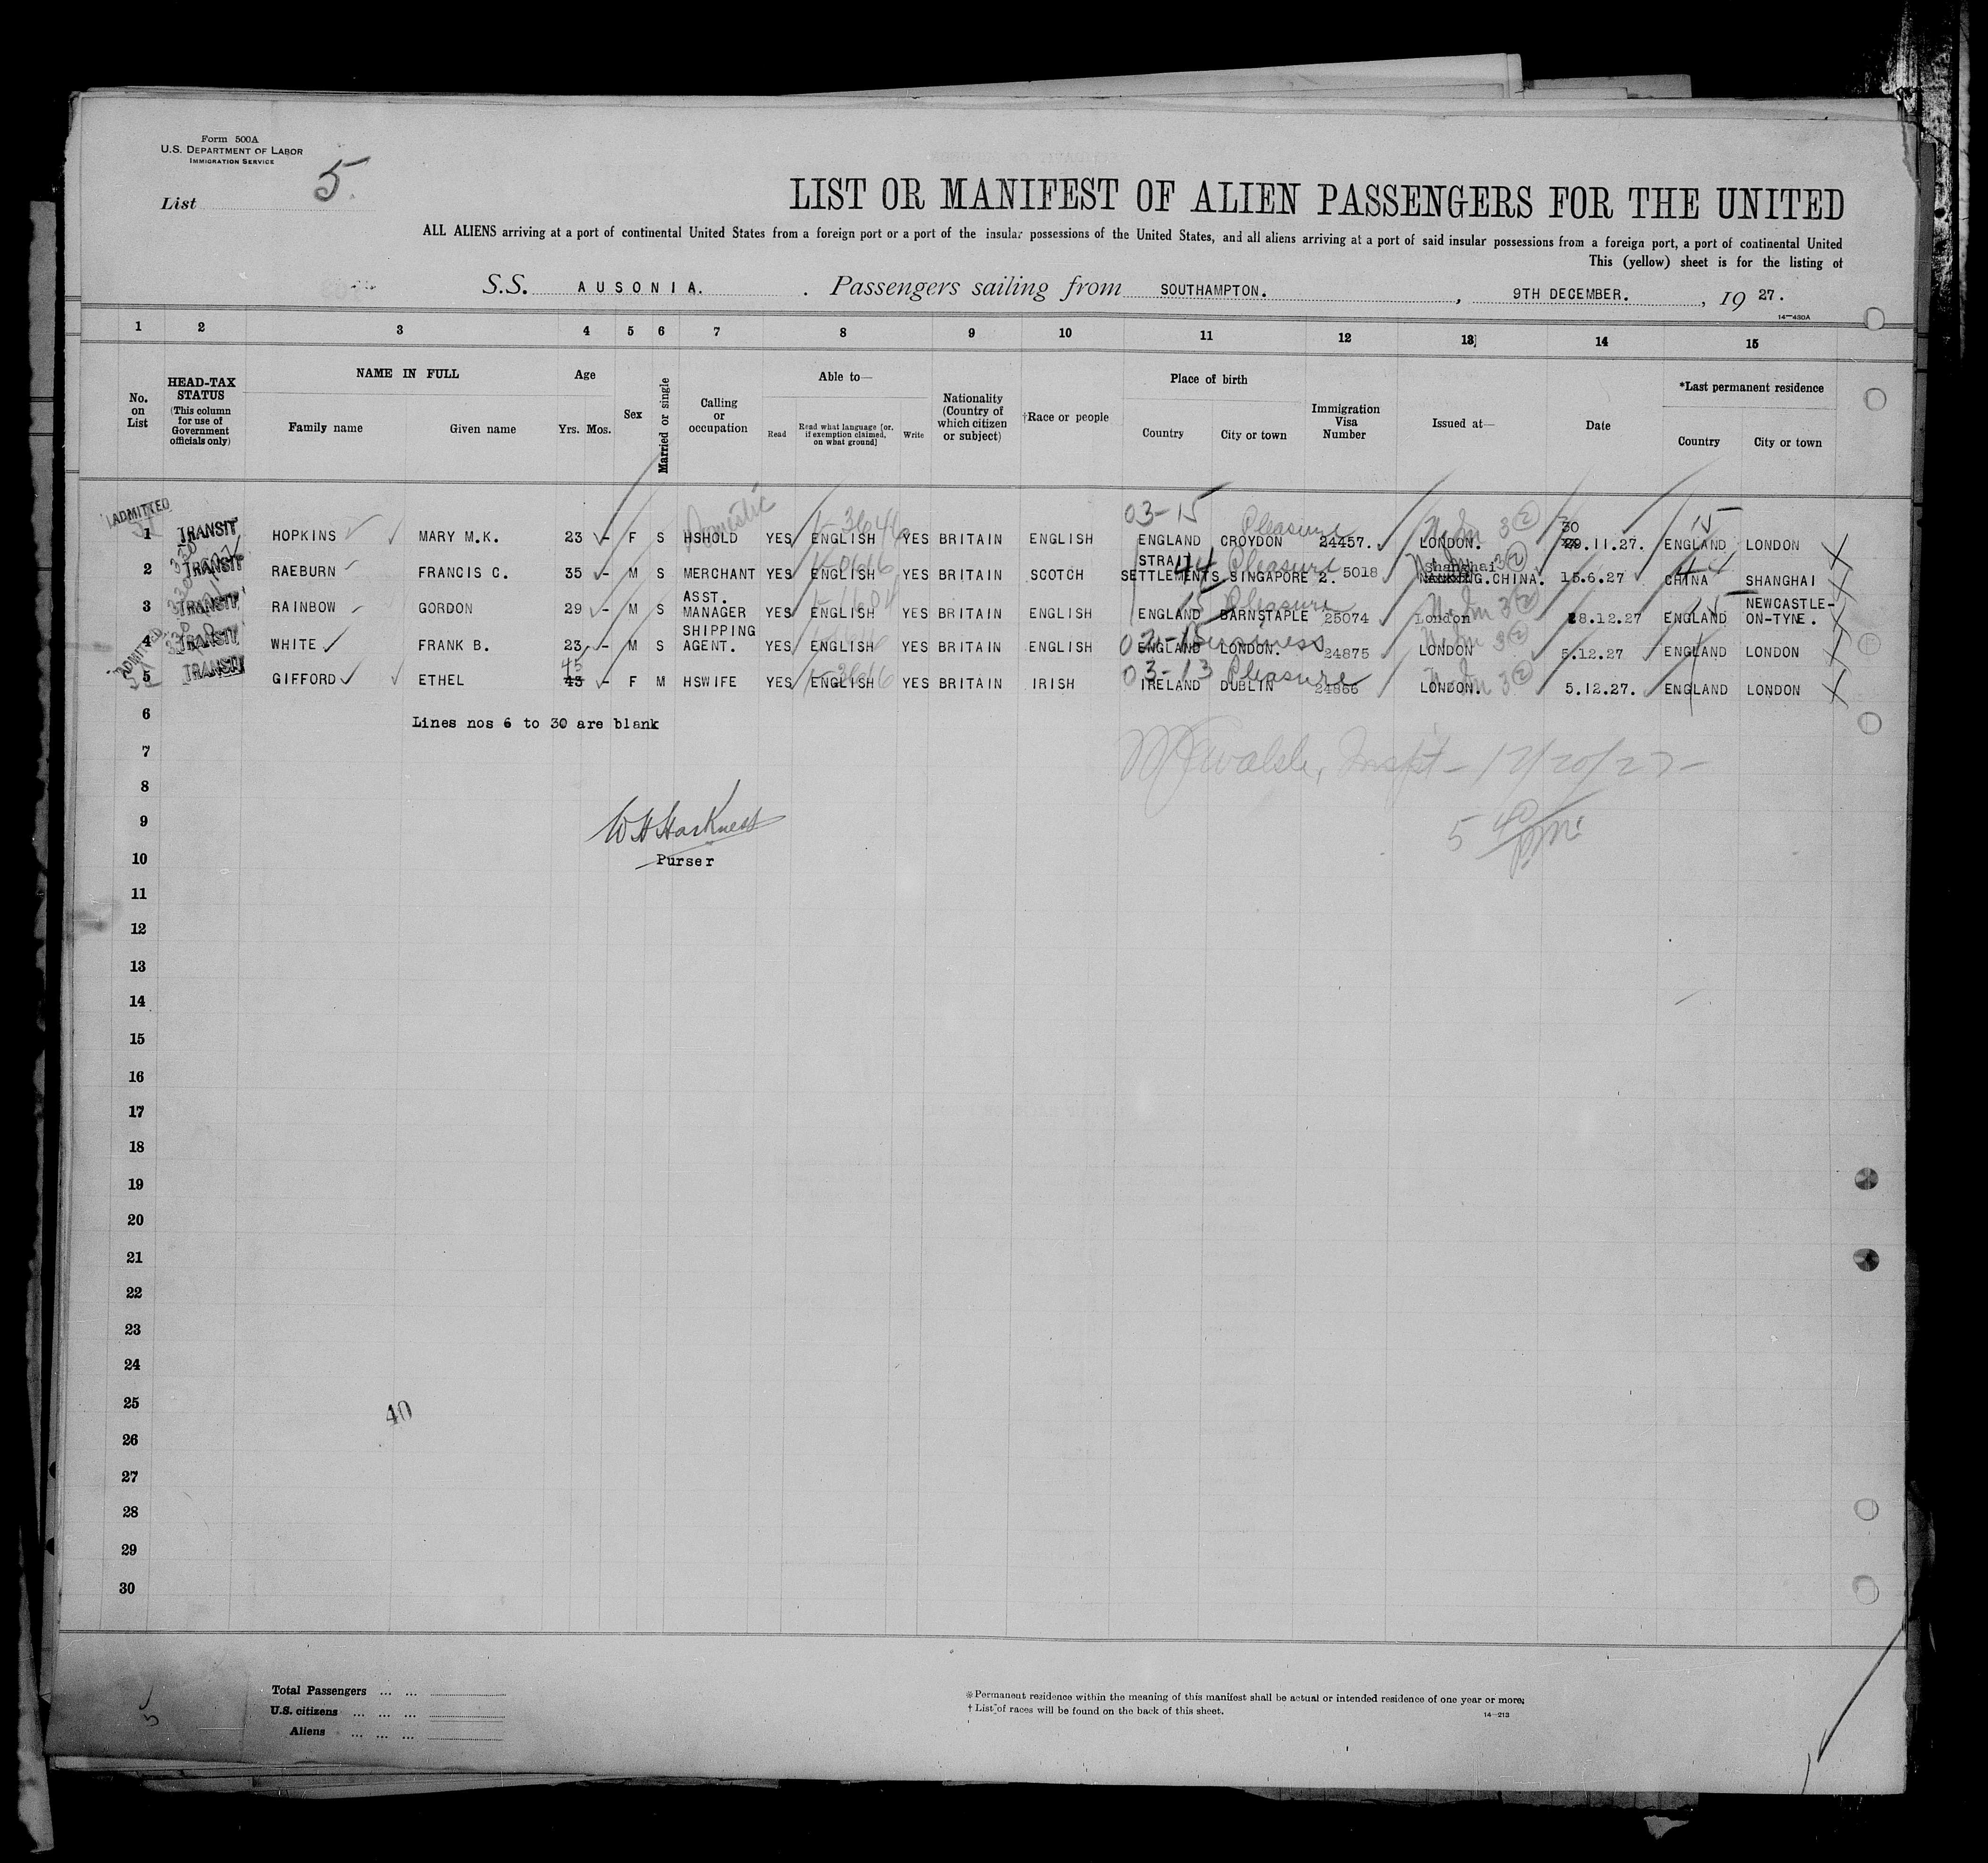 Form 500A
U.S. DEPARTMENT OF LABOR
IMMIGRATION SERVICE
List 5.
LIST OR MANIFEST OF ALIEN PASSENGERS FOR THE UNITED
ALL ALIENS arriving at a port of continental United States from a foreign port or a port of the insular possessions of the United States, and all aliens arriving at a port of said insular possessions from a foreign port, a port of continental United
This (yellow) sheet is for the listing of
S.S. AUSONIA. Passengers sailing from SOUTHAMPTON. , 9TH DECEMBER. , 19 27.
14—430A
1 2 3 4 5 6 7 8 9 10 11 12 13 14 15
No. on List
HEAD-TAX STATUS (This column for use of Government officials only)
NAME IN FULL
Family name Given name
Age
Yrs. Mos.
Sex
Married or single
Calling or occupation
Able to—
Read
Read what language [or, if exemption claimed, on what ground]
Write
Nationality (Country of which citizen or subject)
†Race or people
Place of birth
Country City or town
Immigration Visa Number
Issued at—
Date
*Last permanent residence
Country City or town
ADMITTED
Domestic 03-15 Pleasure 3(2) 30 15
1 TRANSIT HOPKINS MARY M.K. 23 - F S HSHOLD YES ENGLISH YES BRITAIN ENGLISH ENGLAND CROYDON 24457. LONDON. 29.11.27. ENGLAND LONDON
STRAIT 44 Pleasure Shanghai 3(2) 44
2 TRANSIT RAEBURN FRANCIS C. 35 - M S MERCHANT YES ENGLISH YES BRITAIN SCOTCH SETTLEMENTS SINGAPORE 2. 5018 NANKING.CHINA. 15.6.27 CHINA SHANGHAI
ASST. 15 Pleasure 3(2) 15 NEWCASTLE-
3 TRANSIT RAINBOW GORDON 29 - M S MANAGER YES ENGLISH YES BRITAIN ENGLISH ENGLAND BARNSTAPLE 25074 London 8.12.27 ENGLAND ON-TYNE.
SHIPPING Business 3(2)
4 TRANSIT WHITE FRANK B. 23 - M S AGENT. YES ENGLISH YES BRITAIN ENGLISH ENGLAND LONDON. 24875 LONDON 5.12.27 ENGLAND LONDON
ADMITTED 45 03-13 Pleasure 3(2)
5 TRANSIT GIFFORD ETHEL 43 - F M HSWIFE YES ENGLISH YES BRITAIN IRISH IRELAND DUBLIN 24866 LONDON. 5.12.27. ENGLAND LONDON
6 Lines nos 6 to 30 are blank
7 Walsh, Inspt - 12/20/27-
8
9 W H Harkness 5 40 pm
10 Purser
11
12
13
14
15
16
17
18
19
20
21
22
23
24
25 40
26
27
28
29
30
Total Passengers ... ...
U.S. citizens ... ... ...
Aliens ... ... ...
* Permanent residence within the meaning of this manifest shall be actual or intended residence of one year or more.
† List of races will be found on the back of this sheet.
14—213